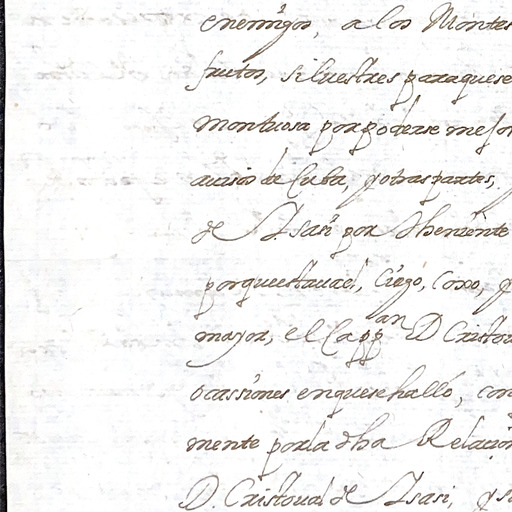 enemigos, a los Montes
frutos, silvestres paraquese
montuosa por poderse mejor
avisos de Cuba, y otras partes,
de Isasi por theniente
porque estava el, ciego, coxo, y
mayor, el Cappan D Cristou
ocassiones enquese halló, con
mente por la dha Relacion
D. Cristoual de Isasi, y su